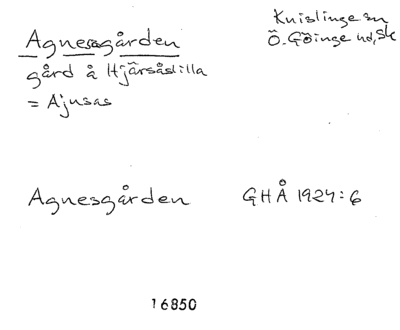 Agnesgården
Knislinge sn
Ö. Göinge hd, Sk
gård å Hjärsåslilla
= Ajusas
Agnesgården GHÅ 1924:6
16850